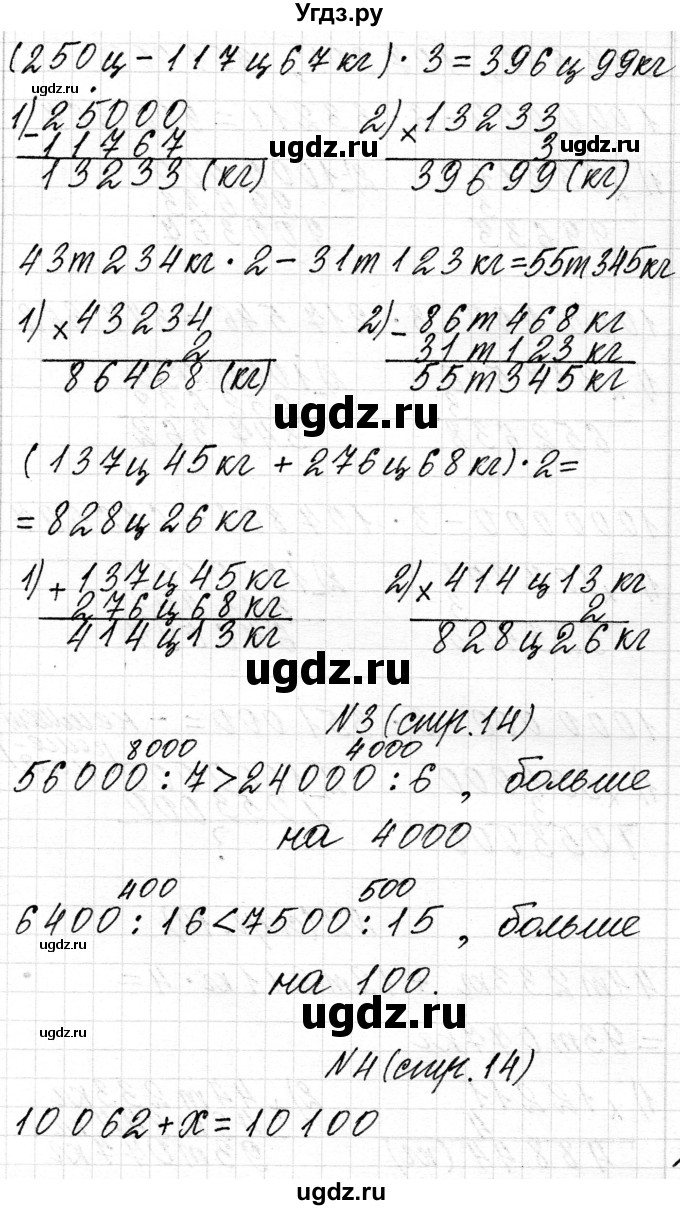 Угдз.ру
(250ц - 117ц67кг) · 3 = 396ц99кг
ugdz.ru
1) - 25000 2) × 13233
11767 3
ugdz.ru ugdz.ru
13233 (кг) 39699 (кг)
43т234кг · 2 - 31т123кг = 55т345кг
1) × 43234 2) - 86т468кг
2 31т123кг
86468 (кг) 55т345кг
ugdz.ru
(137ц45кг + 276ц68кг) · 2 =
= 828ц26кг
1) + 137ц45кг 2) × 414ц13кг
276ц68кг 2
414ц13кг 828ц26кг
ugdz.ru
N3 (стр. 14)
8000 4000
56000 : 7 > 24000 : 6, больше
на 4000
400 500
6400 : 16 < 7500 : 15, больше
ugdz.ru
на 100.
ugdz.ru
ugdz.ru
N4 (стр. 14)
10062 + х = 10100
ugdz.ru